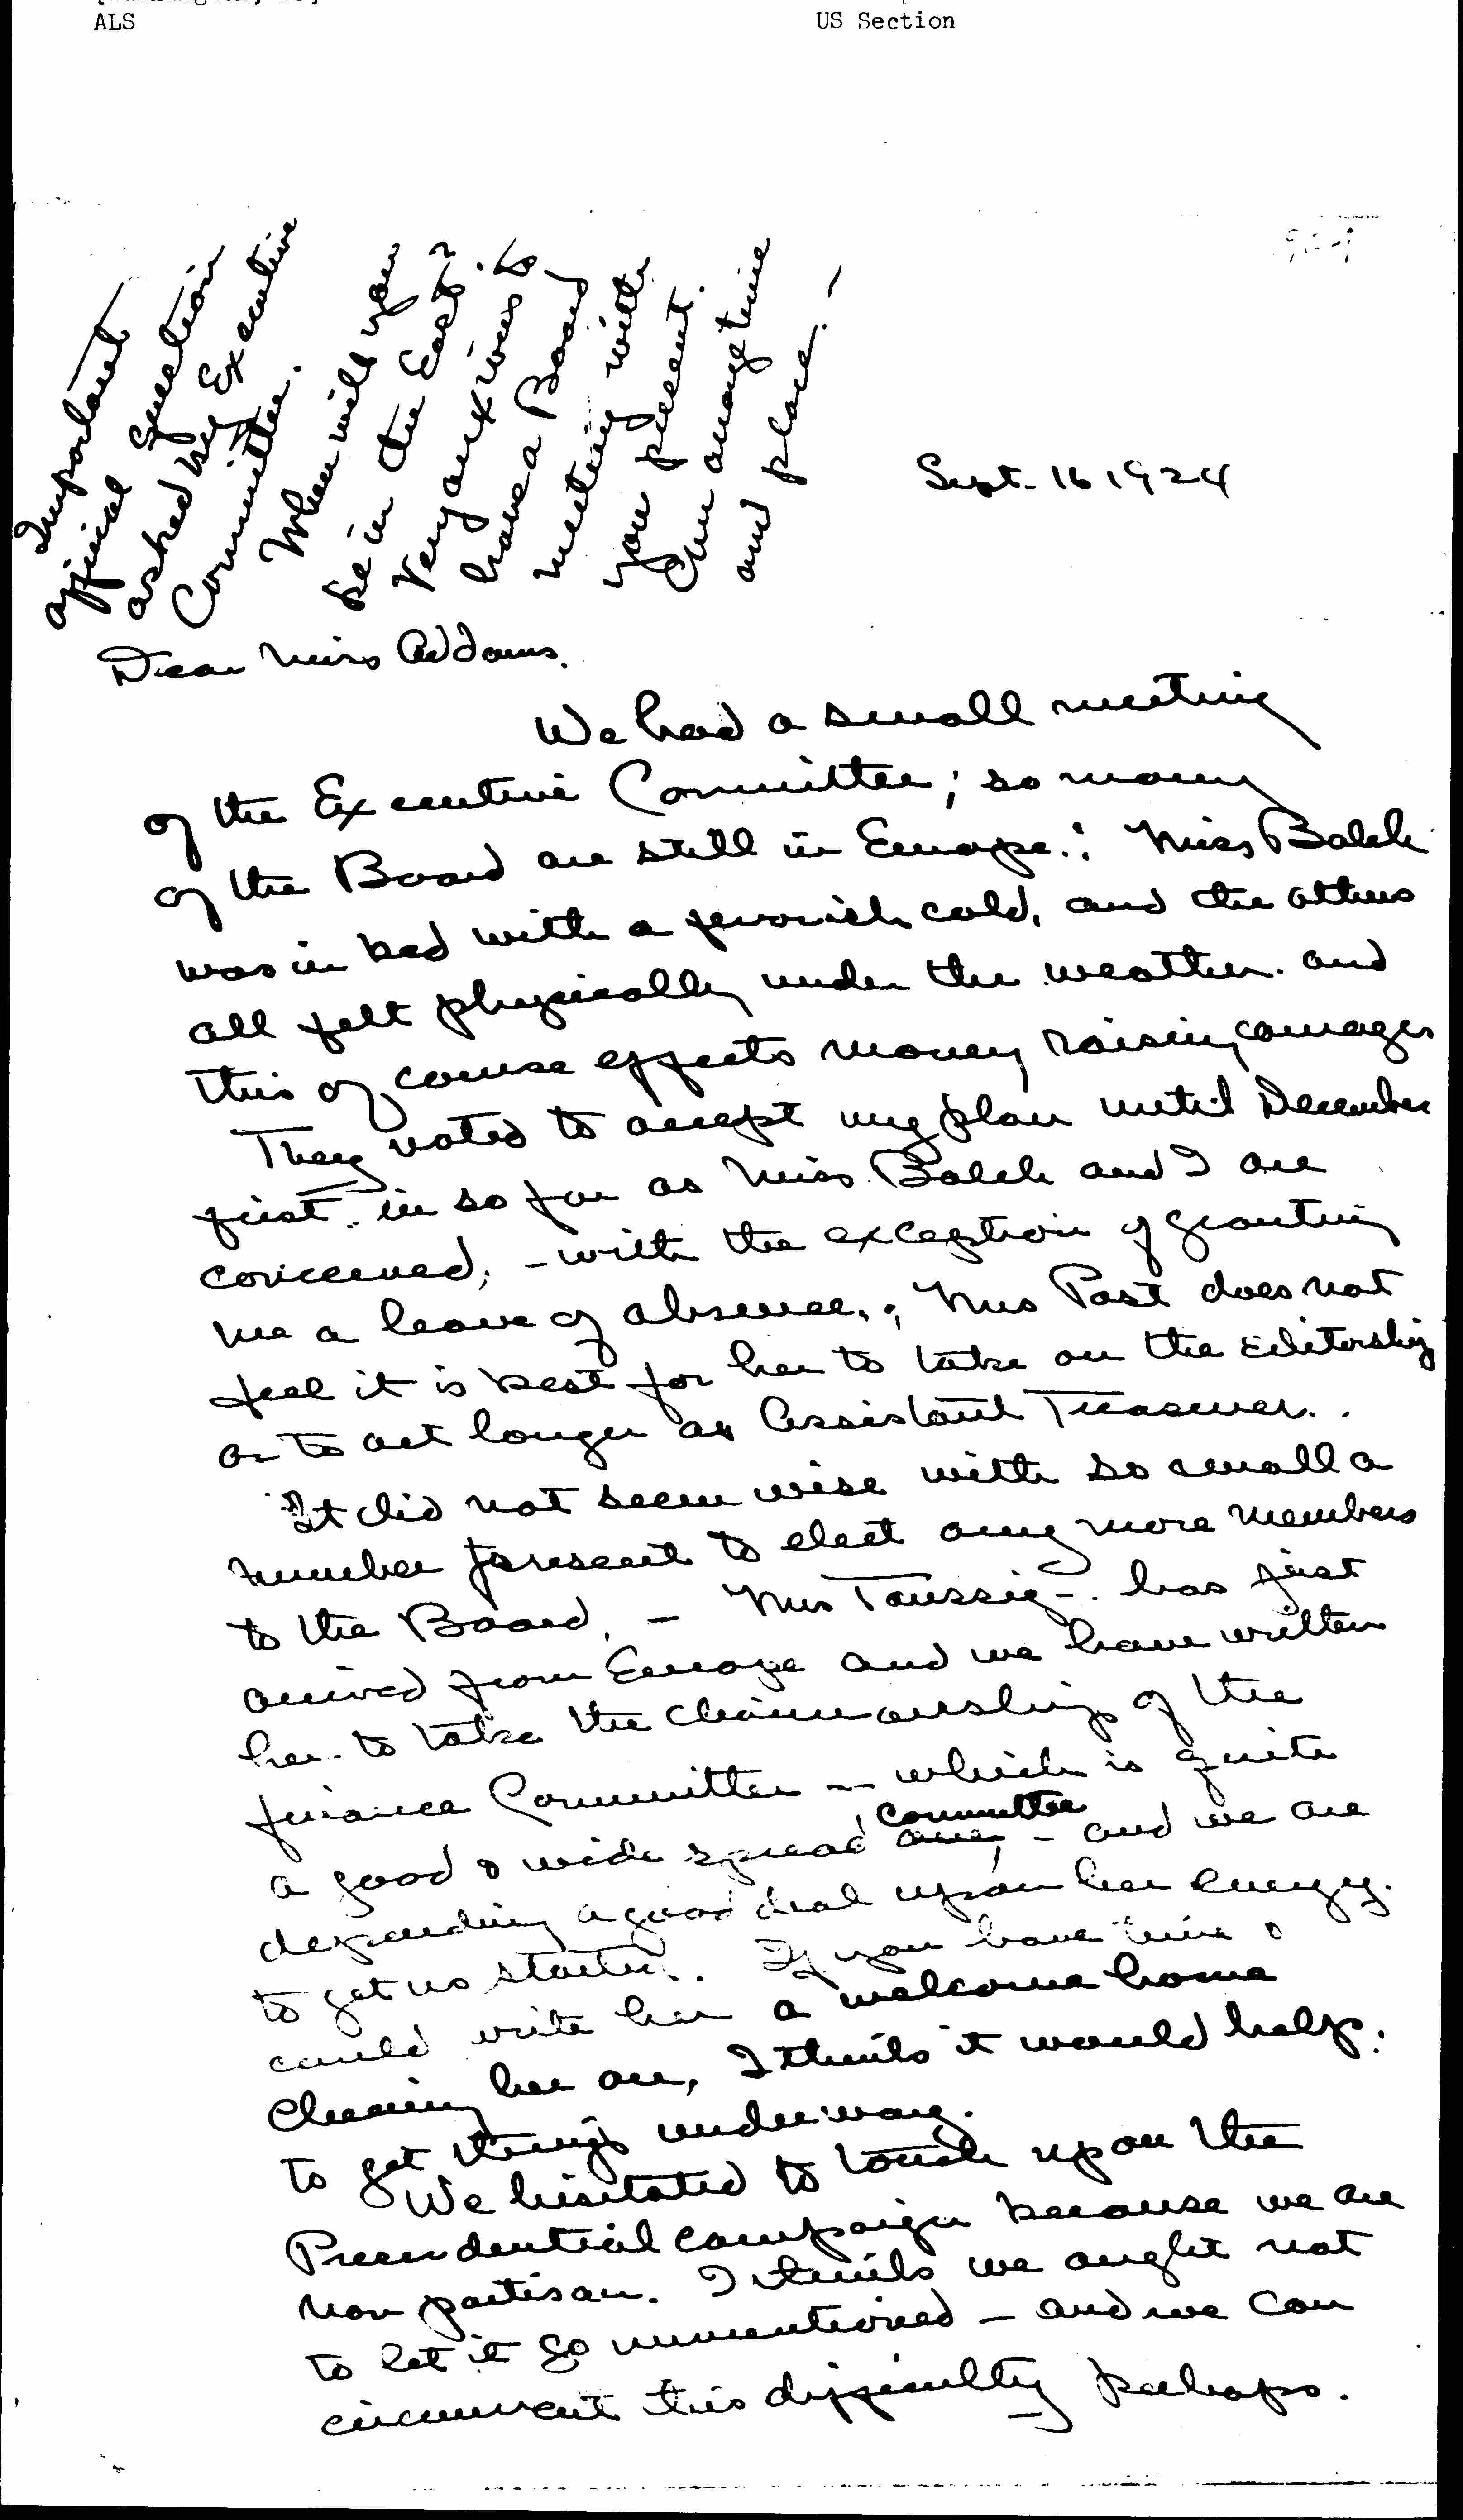 ALS
US Section
Important
official question
asked by Executive
Committee.
When will you
be in the East?
Very anxious to
have a Board
meeting with
you present.
Can arrange time
and place. -
Sept. 16 1924
Dear Miss Addams.
We had a small meeting
of the Executive Committee; so many
of the Board are still in Europe.; Miss Balch
was in bed with a feverish cold, and the others
all felt physically under the weather. and
this of course effects money raising courage.
They voted to accept my plan until December
first. in so far as Miss Balch and I are
concerned; - with the exception of granting
me a leave of absence.; Mrs Post does not
feel it is best for her to take on the editorship
or to act longer as Assistant Treasurer.
It did not seem wise with so small a
number present to elect any more members
to the Board. - Mrs Taussig -. has just
arrived from Europe and we have written
her to take the chairmanship of the
finance Committee -- which is quite
a good & wide spread committee - and we are
depending a good deal upon her energy.
to get us started. If you have time &
could write her a welcome home
cheering her on, I think it would help.
to get things under way.
We hesitated to touch upon the
Presendential campaign because we are
non partisan. I think we ought not
to let it go unmentioned - and we can
circumvent this difficulty perhaps.